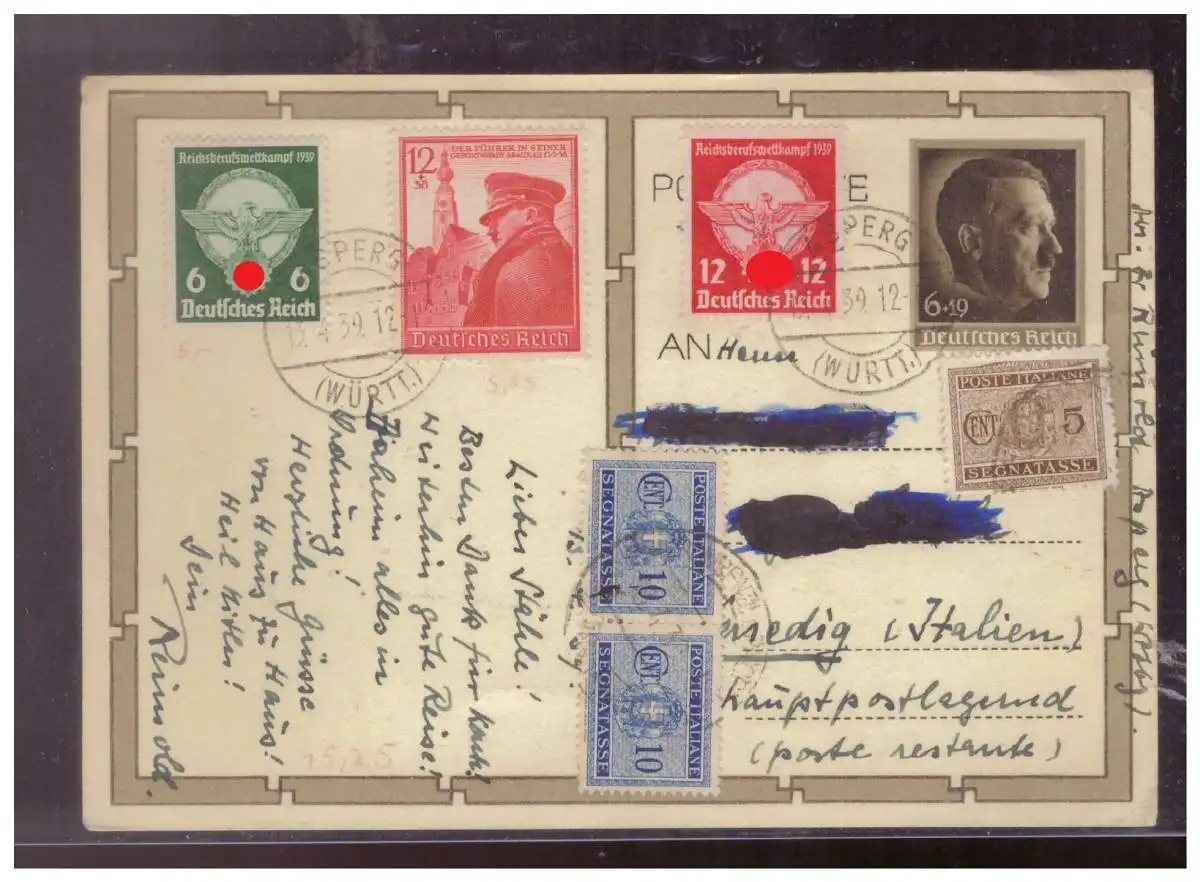 Reichsberufswettkampf 1939
6 6
Deutsches Reich
12
+
38
DER FÜHRER IN SEINER
GEBURTSSTADT BRAUNAU
Deutsches Reich
Reichsberufswettkampf 1939
12 12
Deutsches Reich
6+19
Deutsches Reich
SPERG
4.39.12-
(WÜRTT.)
SPERG
39.12-
(WÜRTT.)
AN Herrn
POSTE ITALIANE
CENT 5
SEGNATASSE
POSTE ITALIANE
CENT 10
SEGNATASSE
POSTE ITALIANE
CENT 10
SEGNATASSE
Venedig (Italien)
Hauptpostlagernd
(poste restante)
Lieber Stähle!
Besten Dank für Karte!
Weiterhin gute Reise!
Daheim alles in
Ordnung!
Herzliche Grüsse
von Haus zu Haus!
Heil Hitler!
Dein
Reinold.
15,25